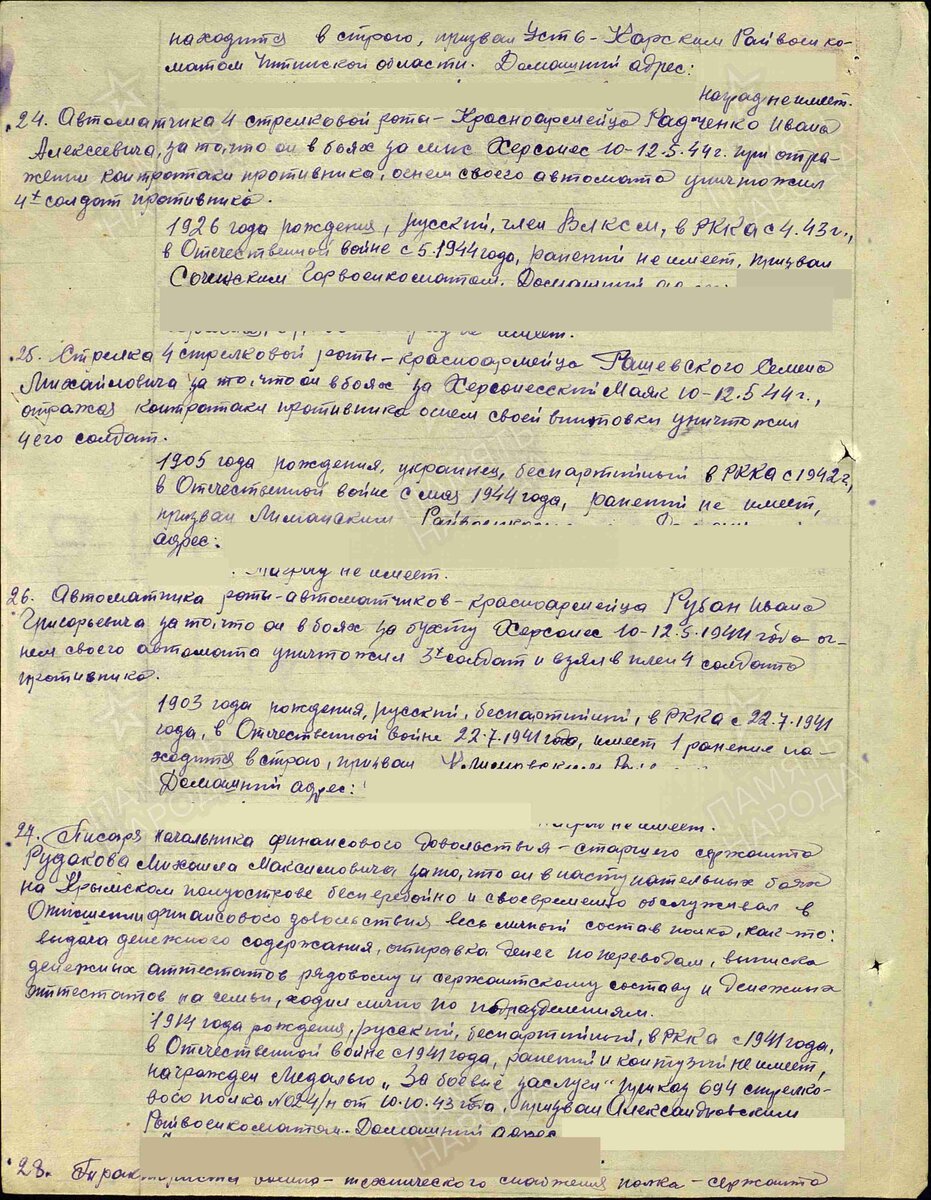 находится в строю, призван Усть-Карским Райвоенко-
матом Читинской области. Домашний адрес:
наград не имеет.
24. Автоматчика 4 стрелковой роты - Красноармейца Радченко Ивана
Алексеевича, за то, что он в боях за мыс Херсонес 10-12.5.44г. при отра-
жении контратаки противника, огнем своего автомата уничтожил
4х солдат противника.
1926 года рождения, русский, член ВЛКСМ, в РККА с 4.43г.,
в Отечественной войне с 5.1944 года, ранений не имеет, призван
Сочинским Горвоенкоматом. Домашний
не имеет.
25. Стрелка 4 стрелковой роты - красноармейца Рашевского Семена
Михайловича за то, что он в боях за Херсонесский Маяк 10-12.5 44г.,
отражая контратаки противника огнем своей винтовки уничтожил
4его солдат.
1905 года рождения, украинец, беспартийный в РККА с 1942г.,
в Отечественной войне с мая 1944 года, ранений не имеет,
призван Лиманским
адрес:
Наград не имеет.
26. Автоматчика роты-автоматчиков - красноармейца Рубан Ивана
Григорьевича за то, что он в боях за бухту Херсонес 10-12.5.1944 года ог-
нем своего автомата уничтожил 3х солдат и взял в плен 4 солдата
противника.
1903 года рождения, русский, беспартийный, в РККА с 22.7.1941
года, в Отечественной войне 22.7.1941 года, имеет 1 ранение на-
ходится в строю, призван
Домашний адрес:
не имеет.
27. Писаря начальника финансового довольствия - старшего сержанта
Рудакова Михаила Максимовича за то, что он в наступательных боях
на Крымском полуострове бесперебойно и своевременно обслуживал в
Отношении финансового довольствия весь личный состав полка, как-то:
выдача денежного содержания, отправка денег по переводам, выписка
денежных аттестатов рядовому и сержантскому составу и денежных
аттестатов на семьи, ходил лично по подразделениям.
1914 года рождения, русский, беспартийный, в РККА с 1941 года,
в Отечественной войне с 1941 года, ранений и контузий не имеет,
награжден медалью „За боевые заслуги" приказ 694 стрелко-
вого полка №024/н от 10.10.43 года, призван Александровским
Райвоенкоматом. Домашний адрес
28. технического снабжения полка - сержанта
ПАМЯТЬ НАРОДА